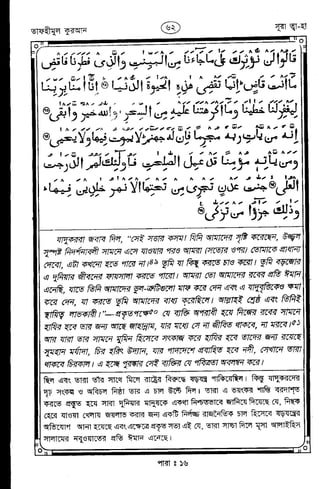 তাফহীমুল কুরআন
৬২
সূরা ত্বা-হা
قَالُوْا لَنْ نُّؤْثِرَكَ عَلٰى مَا جَآءَنَا مِنَ الْبَيِّنٰتِ وَالَّذِىْ فَطَرَنَا فَاقْضِ
مَآ اَنْتَ قَاضٍ اِنَّمَا تَقْضِىْ هٰذِهِ الْحَيٰوةَ الدُّنْيَا ﴿٧٢﴾ اِنَّآ اٰمَنَّا بِرَبِّنَا
لِيَغْفِرَلَنَا خَطٰيٰنَا وَمَآ اَكْرَهْتَنَا عَلَيْهِ مِنَ السِّحْرِ وَاللّٰهُ خَيْرٌ وَّاَبْقٰى ﴿٧٣﴾
اِنَّهٗ مَنْ يَّاْتِ رَبَّهٗ مُجْرِمًا فَاِنَّ لَهٗ جَهَنَّمَ لَا يَمُوْتُ فِيْهَا وَلَا يَحْيٰى ﴿٧٤﴾
وَمَنْ يَّاْتِهٖ مُؤْمِنًا قَدْ عَمِلَ الصّٰلِحٰتِ فَاُولٰٓئِكَ لَهُمُ الدَّرَجٰتُ
الْعُلٰى ﴿٧٥﴾ جَنّٰتُ عَدْنٍ تَجْرِىْ مِنْ تَحْتِهَا الْاَنْهٰرُ خٰلِدِيْنَ فِيْهَا
وَذٰلِكَ جَزٰٓؤُا مَنْ تَزَكّٰى ﴿٧٦﴾
যাদুকররা জবাব দিল, “সেই সত্তার কসম! যিনি আমাদের সৃষ্টি করেছেন, উজ্জ্বল
সুস্পষ্ট নিদর্শনাবলী সামনে এসে যাওয়ার পরও আমরা (সত্যের ওপর) তোমাকে প্রাধান্য
দেবো, এটা কখনো হতে পারে না। তুমি যা কিছু করতে চাও করো। তুমি বড়জোর
এ দুনিয়ার জীবনের ফায়সালা করতে পারো। আমরা তো আমাদের রবের প্রতি ঈমান
এনেছি, যাতে তিনি আমাদের ভুল-ত্রুটিগুলো মাফ করে দেন এবং এ যাদুবৃত্তিকেও ক্ষমা
করে দেন, যা করতে তুমি আমাদের বাধ্য করেছিলে। আল্লাহই শ্রেষ্ঠ এবং তিনিই
স্থায়িত্ব লাভকারী।”—প্রকৃতপক্ষে যে ব্যক্তি অপরাধী হয়ে নিজের রবের সামনে
হাযির হবে তার জন্য আছে জাহান্নাম, যার মধ্যে সে না জীবিত থাকবে, না মরবে।
আর যারা তার সামনে মুমিন হিসেবে সৎকাজ করে হাযির হবে তাদের জন্য রয়েছে
সুমহান মর্যাদা, চির হরিৎ উদ্যান, যার পাদদেশে প্রবাহিত হবে নদী, সেখানে তারা
থাকবে চিরকাল। এ হচ্ছে পুরস্কার সেই ব্যক্তির যে পবিত্রতা অবলম্বন করে।
ছিল এবং তারা তাঁর সাথে মিলে রাষ্ট্রের বিরুদ্ধে ষড়যন্ত্র পাকিয়েছিল। কিন্তু যাদুকরদের
দৃঢ় সংকল্প ও অবিচল নিষ্ঠা তার এ চাল উল্টে দিল। তারা এ ভয়ংকর শাস্তি বরদাশ্ত
করতে প্রস্তুত হয়ে সারা দুনিয়ার মানুষকে একথা নিশ্চিতভাবে জানিয়ে দিয়েছে যে, নিছক
হেরে যাওয়া খেলায় জয়লাভ করার জন্য একটি নির্লজ্জ রাজনৈতিক চাল হিসেবে ষড়যন্ত্রের
অভিযোগ আনা হয়েছে এবং এক্ষেত্রে প্রকৃত সত্য এই যে, তারা সাচ্চা দিলে মূসা আলাইহিস
সালামের নবুওয়াতের প্রতি ঈমান এনেছে।
পারা ঃ ১৬